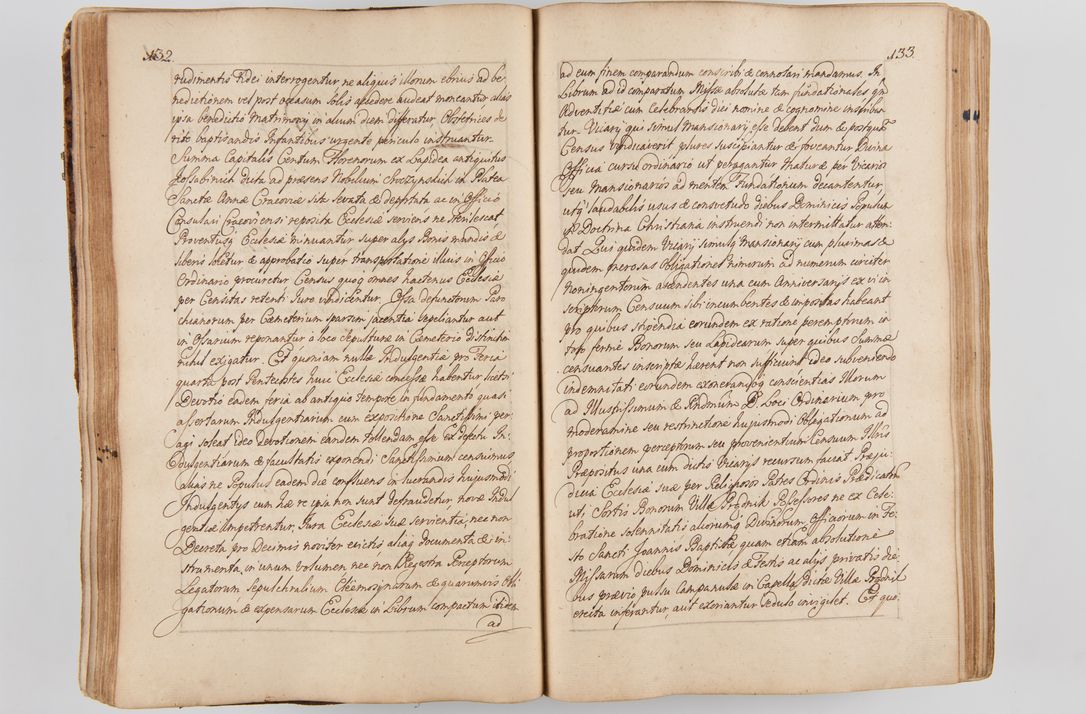 132.
rudimentis Fidei interrogentur ne aliquis illorum ebrius ad be
nedictionem vel post occasum solis accedere audeat moneantur, alias
ipsa benedictio Matrimony in alium diem differatur. Obstetrices de
rite baptisandis Infantibus urgente periculo instruantur.
Summa Capitalis Centum Florenorum ex Lapidea antiquitus
Josubinich dicta ad præsens Nobilium in Platea
Sanctæ Annæ Cracoviæ sita levata & depositata ac in Officio
Consulari Cracoviensi reposita Ecclesiæ serviens ne sterilescat
Proventusq Ecclesiæ minuantur super alys Bonis mundis &
liberis locetur & approbatio super transportatione illius in Officio
Ordinario procuretur Census quoq omnes hactenus Ecclesiæ
per Censitas retenti Jure vindicentur. Ossa defunctorum Paro
chianorum per Cæmeterium sparsim jacentia sepeliantur aut
in Ossarium reponantur a loco sepulturæ in Cæmeterio Districtim
nihil exigatur. Et quoniam nullæ Indulgentiæ pro Feria
quarta post Pentecostes huic Ecclesiæ concessæ habentur licet
Devotio eadem feria ab antiquo tempore in fundamento quasi
assertarum Indulgentiarum cum expositione Sanctissimi per
agi soleat ideo devotionem eandem tollendam esse ex defectu In
dulgentiarum & facultatis exponendi Sanctissimum censuimus
alias ne Populus eadem die confluens in lucrandis hujusmodi
Indulgentys cum hæ re ipsa non sunt defraudetur novæ Indul
gentiæ impetrentur. Jura Ecclesiæ suæ servientia, nec non
Decreta pro Decimis noviter evictis aliaq documenta & in
strumenta, in unum volumen nec non Regestra Perceptorum
Legatorum Sepulchralium Eleemosynarum & quarumvis Obli
gationum & expensarum Ecclesiæ in Librum compactum itidem
ad
133.
ad eum finem comparandum conscribi & connotari mandamus. In
Librum ad id comparatum Missæ absolutæ tam fundationales qm
Adventitiæ cum Celebrantis diei nomine & cognomine inscriban
tur. Vicarij qui simul Mansionarij esse debent dum & postquam
Census vindicaverit plures suscipiantur & foveantur Divina
Officia cursu ordinario ut peragantur Maturæ per Vicarios
seu Mansionarios ad mentem Fundationum decantentur,
utq laudabilis usus & consvetudo diebus Dominicis Populum
in Doctrina Christiana instruendi non intermittatur atten
dat Qui quidem Vicarij simulq Mansionarij cum plurimas &
quidem onerosas Obligationes Numerum ad numerum circiter
Noningentorum ascendentes una cum Anniversarijs ex vi in
scriptorum Censuum sibi incumbentes & impositas habeant
pro quibus stipendia eorundem ex ratione peremptorum in
toto ferme Bonorum seu Lapidearum super quibus Summæ
censuantes inscriptæ hærent non sufficiunt ideo subveniendo
indemnitati eorundem exonerandoq conscientias Illorum
ad Illustrissimum & Rndmum D. Loci Ordinarium pro
moderamine seu restrictione hujusmodi Obligationum ad
proportionem perceptorum seu provenientium Censuum Illris
Præpositus una cum dictis Vicarijs recursum faciat. Præju
dicia Ecclesiæ suæ per Religiosos Patres Ordinis Prædicatorum
uti Sortis Bonorum Villæ Prądnik Possessores ne ex Cele
bratione solennitatis aliorumq Divinorum Officiorum in Fe
sto Sancti Joannis Baptistæ quam etiam absolutione
Missarum diebus Dominicis & Festis ac alys privatis die
bus prævio pulsu Campanulæ in Capella dictæ Villæ Prądnik
erecta inferantur, aut exoriantur sedulo invigilet. Et quo